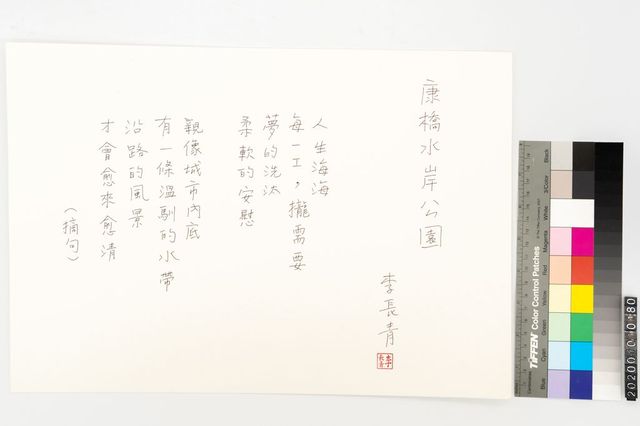 康橋水岸公園
李長青
人生海海
每一工，攏需要
夢的洗汰
柔軟的安慰
親像城市內底
有一條溫馴的水帶
沿路的風景
才會愈來愈清
（摘句）
TIFFEN Color Control Patches
Blue
Cyan
Green
Yellow
Red
Magenta
White
3/Color
Black